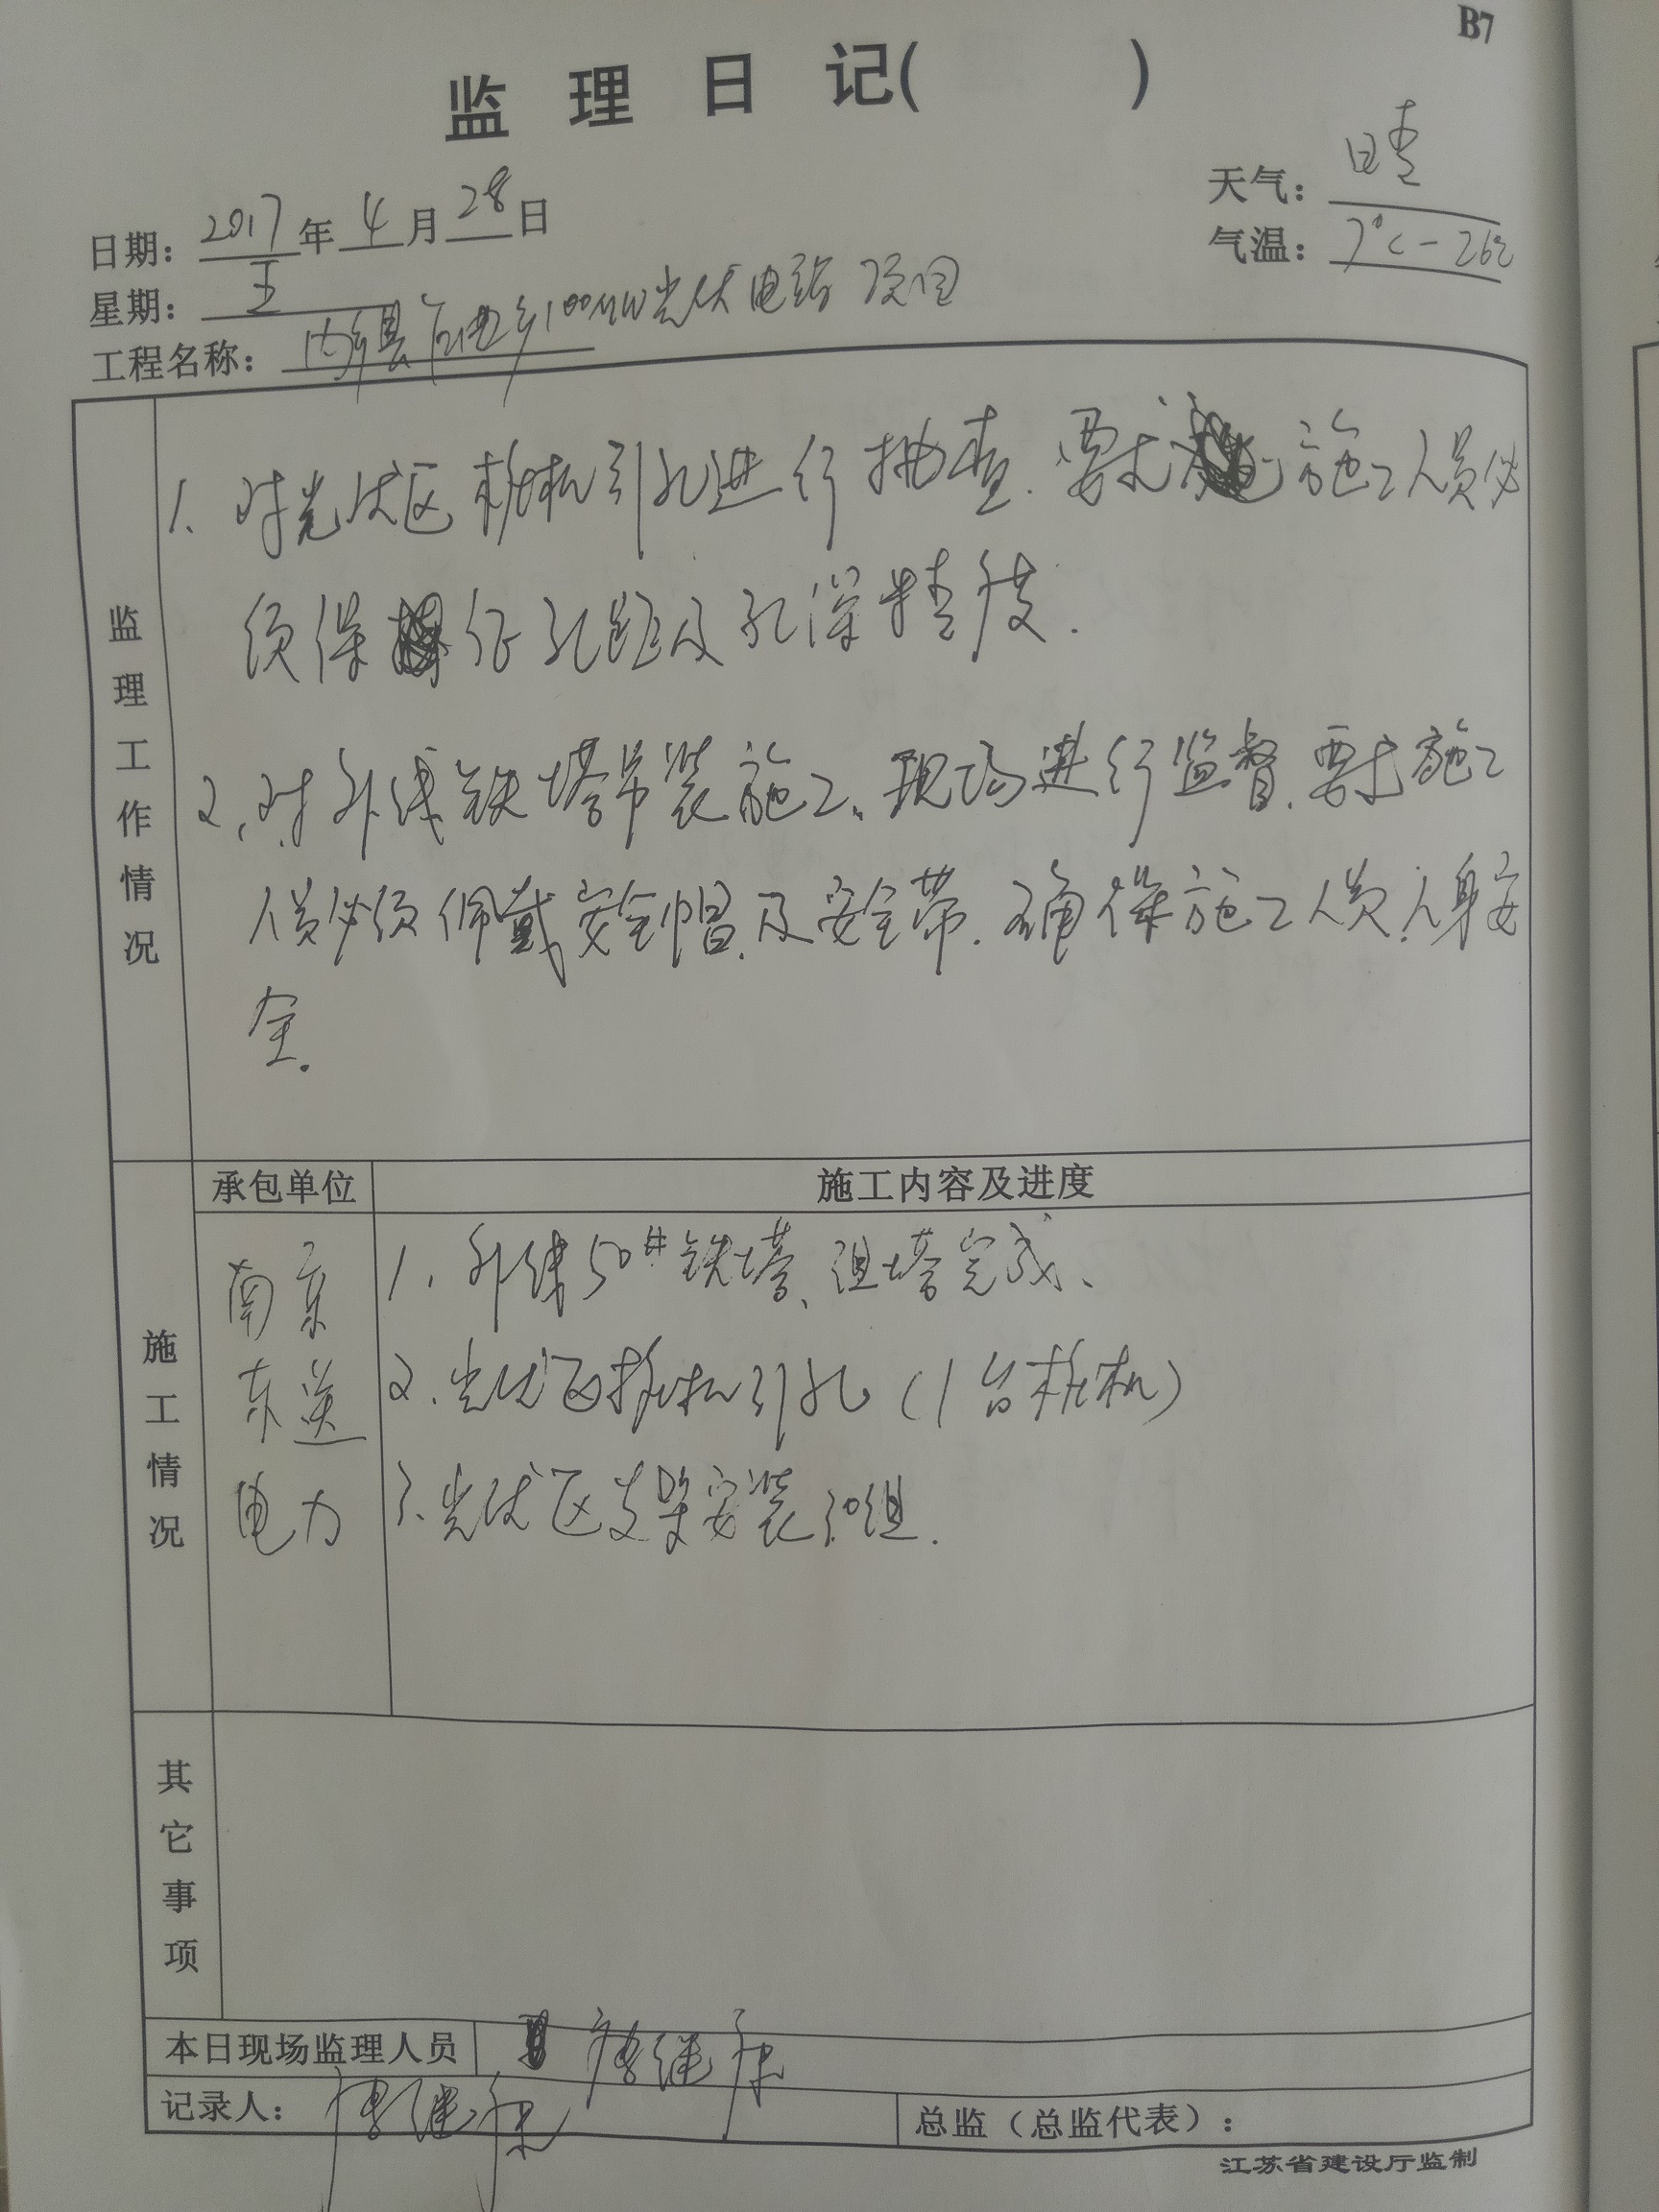 B7
监 理 日 记( )
日期: 2017 年 4 月 28 日
天气: 晴
星期: 五
气温: 7°C-26℃
工程名称: 内乡县 乡100MW光伏电站项目
监理工作情况
1、对光伏区桩机引孔进行抽查.要求 施工人员必
须保 证孔距及孔深精度.
2、对外线铁塔吊装施工、现场进行监督.要求施工
人员必须佩戴安全帽及安全带.确保施工人员人身安
全.
施工情况
承包单位
施工内容及进度
南京
东送
电力
1、外线50#铁塔、组塔完成、
2、光伏区桩机引孔(1台桩机)
3、光伏区支架安装30组.
其它事项
本日现场监理人员 唐继
记录人: 唐继
总监(总监代表):
江苏省建设厅监制